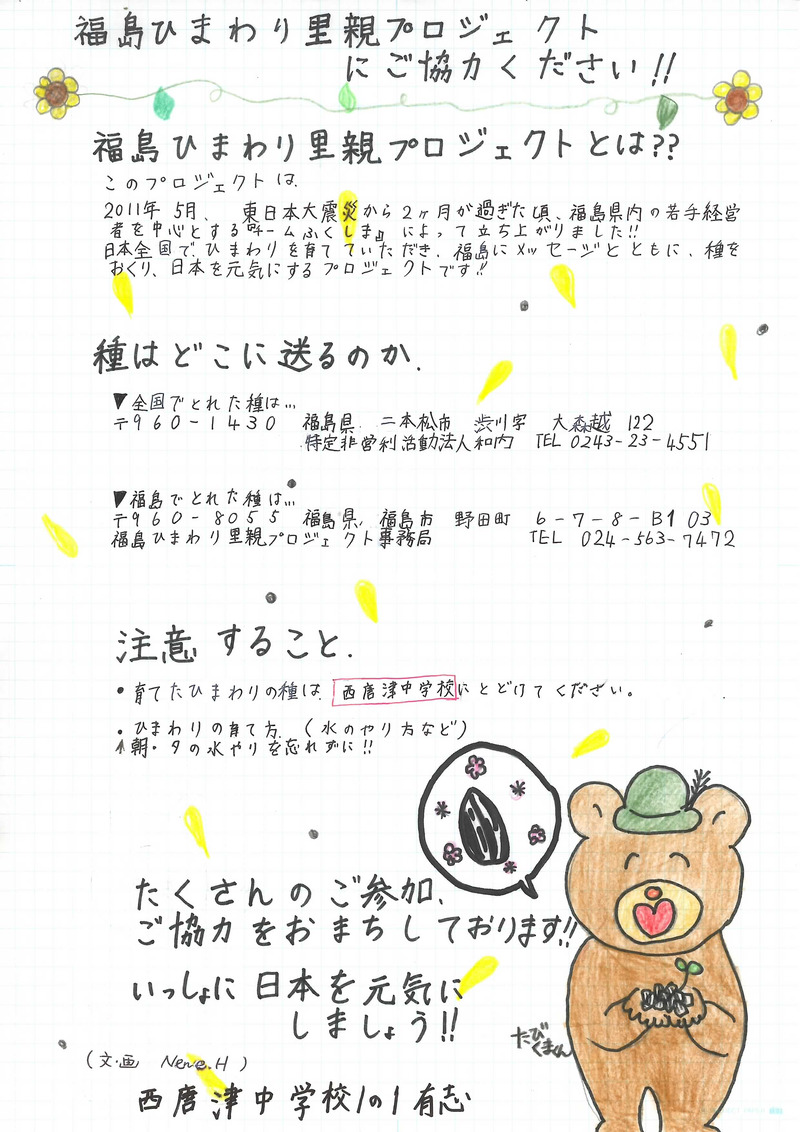 福島ひまわり里親プロジェクト
にご協力ください!!
福島ひまわり里親プロジェクトとは??
このプロジェクトは、
2011年 5月、 東日本大震災から2ヶ月が過ぎた頃、福島県内の若手経営
者を中心とする『チームふくしま』によって立ち上がりました!!
日本全国で、ひまわりを育てていただき、福島にメッセージとともに、種を
おくり、日本を元気にするプロジェクトです!!
種はどこに送るのか、
▼全国でとれた種は…
〒960-1430 福島県 二本松市 渋川字 大森越 122
特定非営利活動法人和内 TEL 0243-23-4551
▼福島でとれた種は…
〒960-8055 福島県 福島市 野田町 6-7-8-B103
福島ひまわり里親プロジェクト事務局 TEL 024-563-7472
注意すること、
• 育てたひまわりの種は、西唐津中学校にとどけてください。
• ひまわりの育て方、(水のやり方など)
↑朝・夕の水やりを忘れずに!!
たくさんのご参加、
ご協力をおまちしております!!
いっしょに日本を元気に
しましょう!!
たびくまくん
(文・画 Nene.H)
西唐津中学校1の1有志